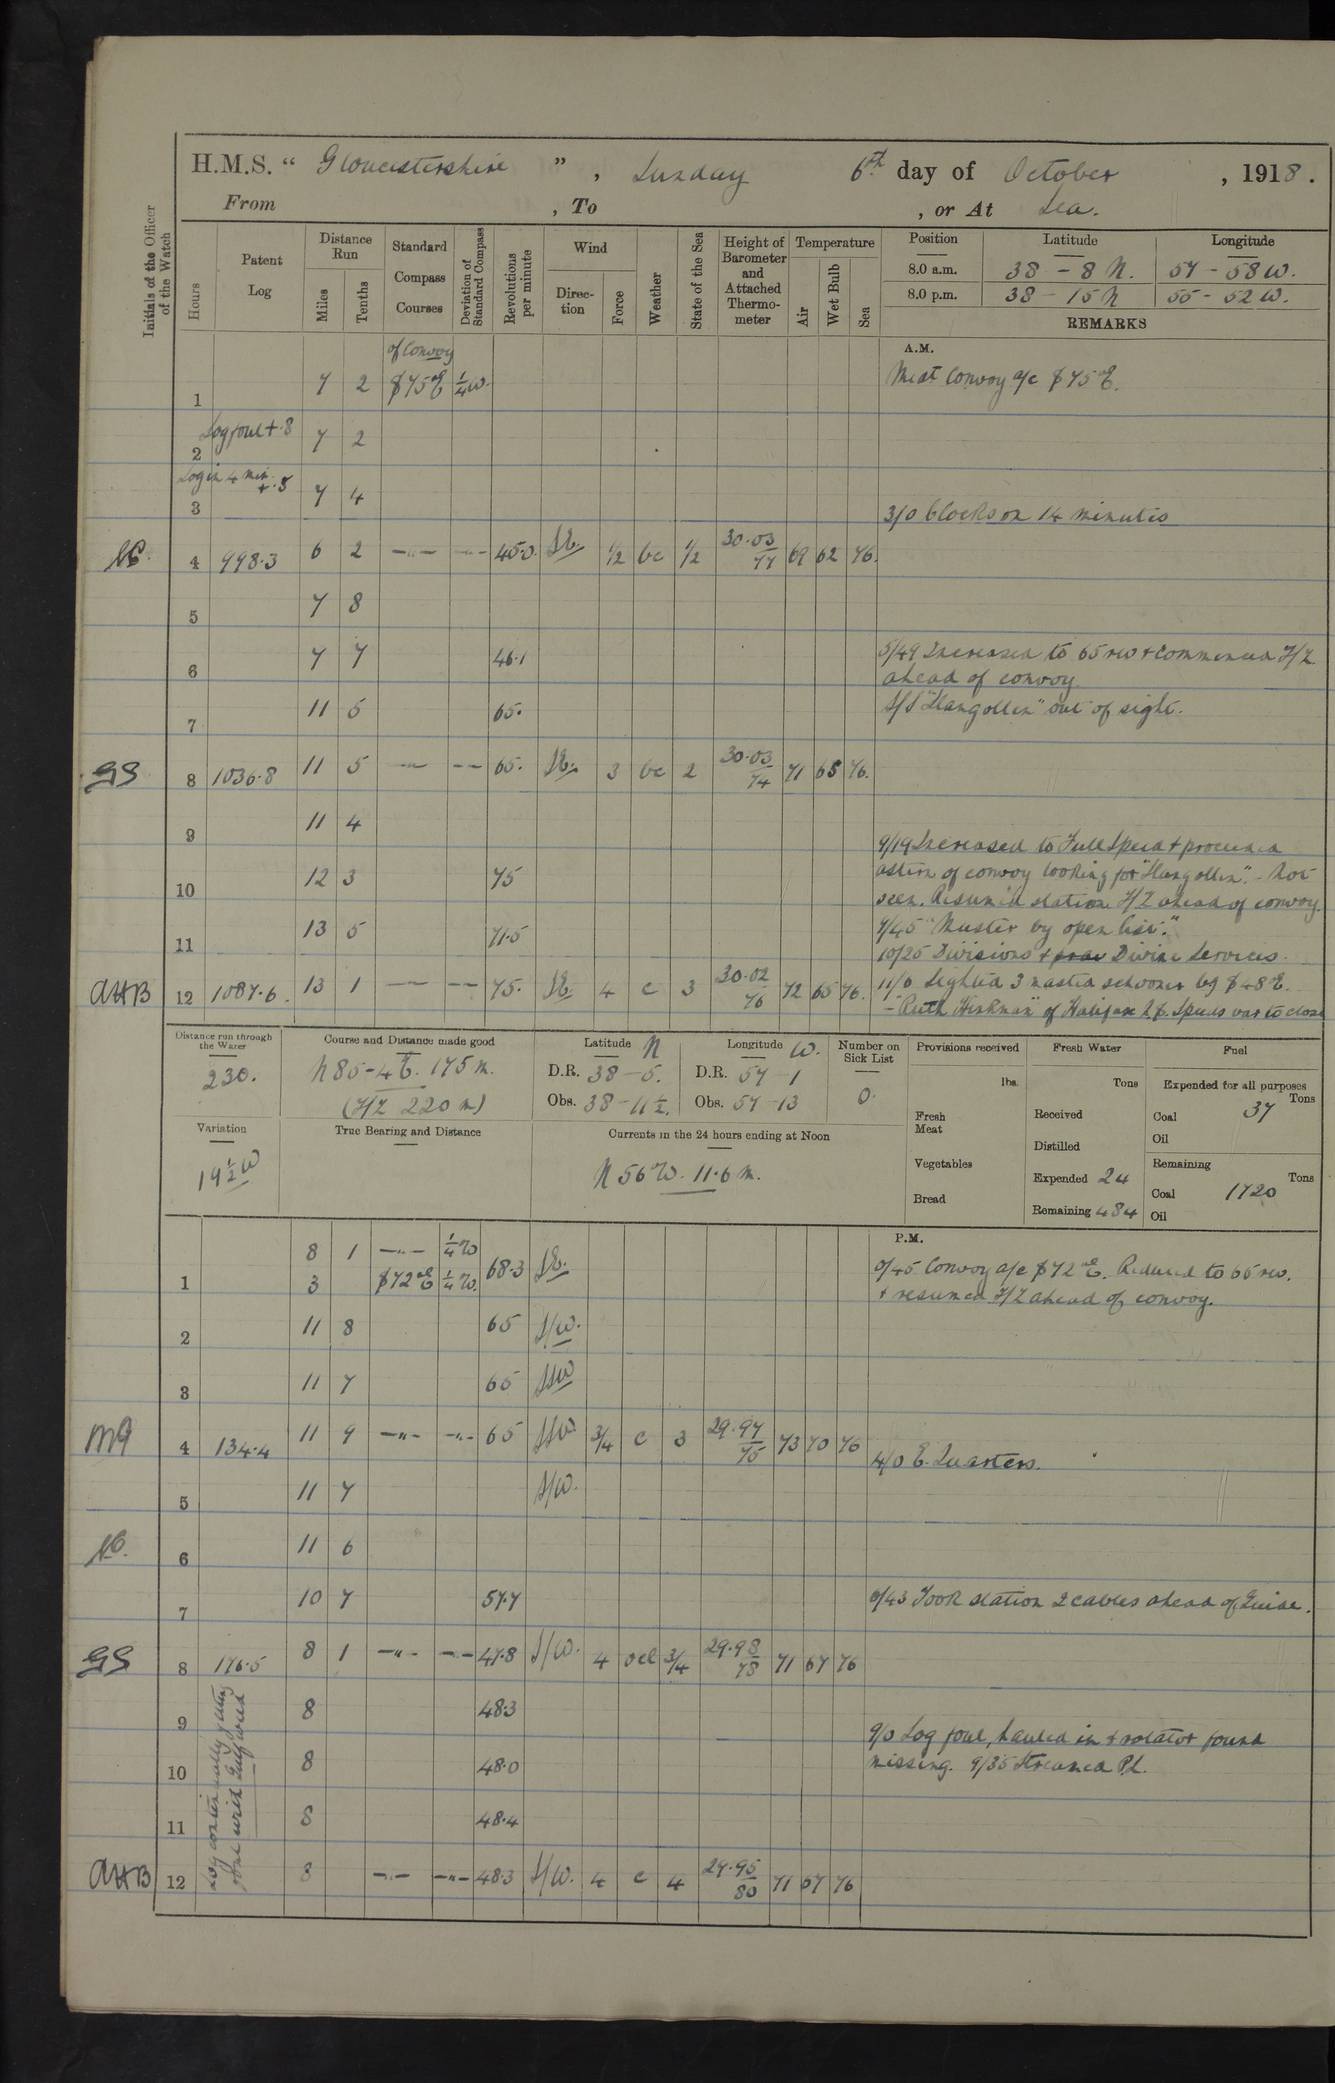 H.M.S. " Gloucestershire ", Sunday 6th day of October, 1918.
From , To , or At Sea.
Initials of the Officer of the Watch
Hours
Patent Log
Distance Run
Miles
Tenths
Standard Compass Courses
Deviation of Standard Compass
Revolutions per minute
Wind
Direction
Force
Weather
State of the Sea
Height of Barometer and Attached Thermometer
Temperature
Air
Wet Bulb
Sea
Position Latitude Longitude
8.0 a.m. 38 - 8 N. 57 - 58 W.
8.0 p.m. 38 - 15 N 55 - 52 W.
REMARKS
A.M.
of Convoy
1 7 2 S 75° E ¼ W. Mean Convoy a/c S 75° E.
2 Log foul + .8 7 2
3 Log in 4 min + .5 7 4
3/0 Clocks on 14 minutes
4 998.3 6 2 -"- -"- 45.0 SE. ½ bc ½ 30.03/77 69 62 76.
5 7 8
6 7 7 46.1 5/49 Increased to 65 rev + commenced Z/Z
ahead of convoy
7 11 5 65. S/S "Llangollen" out of sight.
GS 8 1036.8 11 5 -"- -"- 65. SE. 3 bc 2 30.03/74 71 65 76.
9 11 4
9/19 Increased to Full Speed + proceeded
10 12 3 75 astern of convoy looking for "Llangollen". - Not
seen. Resumed station Z/Z ahead of convoy.
11 13 5 71.5 9/45 "Muster by open list."
10/25 Divisions + Divine Services.
AHB 12 1087.6. 13 1 -"- -"- 75. SE 4 c 3 30.02/76 72 65 76. 11/0 Sighted 3 masted schooner bg S 48 E.
- "Ruth Hickman" of Halifax N.S. Speeds var to close
Distance run through the Water 230.
Course and Distance made good N 85-4 E. 175 m.
(Z/Z 220 m)
Latitude N
D.R. 38 - 5.
Obs. 38 - 11½.
Longitude W.
D.R. 57 - 1
Obs. 57 - 13
Number on Sick List 0.
Provisions received
lbs.
Fresh Meat
Vegetables
Bread
Fresh Water
Tons
Received
Distilled
Expended 24
Remaining 484
Fuel
Expended for all purposes
Tons
Coal 37
Oil
Remaining
Tons
Coal 1720
Oil
Variation 19½ W
True Bearing and Distance
Currents in the 24 hours ending at Noon
N 56° W. 11.6 m.
P.M.
8 1 -"- ¼ W
1 3 S 72° E ¼ W. 68.3 SE. 0/45 Convoy a/c S 72° E. Reduced to 65 rev.
+ resumed Z/Z ahead of convoy.
2 11 8 65 S/W.
3 11 7 65 SSW
4 134.4 11 9 -"- -"- 65 SSW 3/4 c 3 29.97/75 73 70 76
4/0 E. Quarters.
5 11 7 S/W.
6 11 6
7 10 7 57.7 6/43 Took station 2 cables ahead of Guide.
GS 8 176.5 8 1 -"- -"- 47.8 S/W. 4 ocl 3/4 29.98/78 71 67 76
Log continually getting foul with Gulf weed
9 8 48.3
9/0 Log foul, hauled in + rotator found
10 8 48.0 missing. 9/35 Streamed P.L.
11 8 48.4
AHB 12 8 -"- -"- 48.3 S/W. 4 c 4 29.95/80 71 67 76